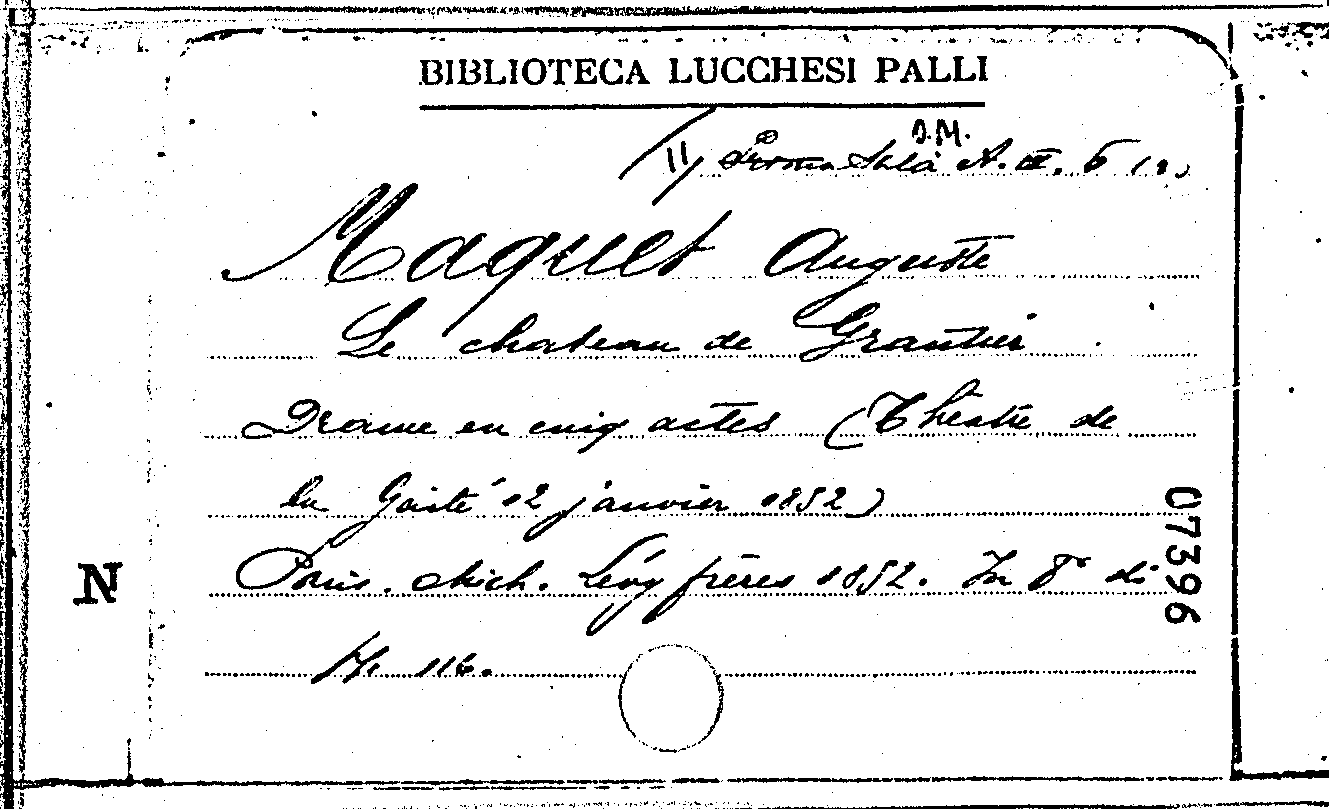 BIBLIOTECA LUCCHESI PALLI
D.M.
11) Sala A. III. 6
Maquet Auguste
Le chateau de Grantier
Drame en cinq actes (Théatre de
la Gaité 12 janvier 1852)
Paris. Mich. Lévy frères 1852. In 8° di
pp. 116.
N
07396